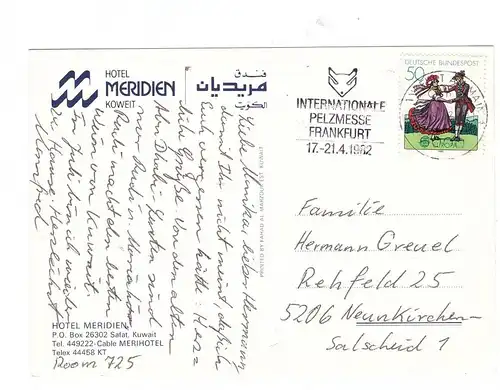 HOTEL
MERIDIEN
KOWEIT
فندق
مريديان
الكويت
Liebe Monika, lieber Hermann,
damit Ihr nicht meint, daß ich
Euch vergessen hätte: Herz-
liche Grüße. Von den alten
Abu Dhabi-Leuten sind
nur
Pauli macht den besten
von Kuwait.
Im Juli bin ich wieder
zu Hause. Herzlichst
Manfred
PRINTED BY FAHAD AL MARZOUK EST. KUWAIT
HOTEL MERIDIEN
P.O. Box 26302 Safat, Kuwait
Tel. 449222-Cable MERIHOTEL
Telex 44458 KT
Room 725
INTERNATIONALE
PELZMESSE
FRANKFURT
17.-21.4.1982
DEUTSCHE BUNDESPOST
50
EUROPA
Familie
Hermann Greuel
Rehfeld 25
5206 Neunkirchen-
Salscheid 1